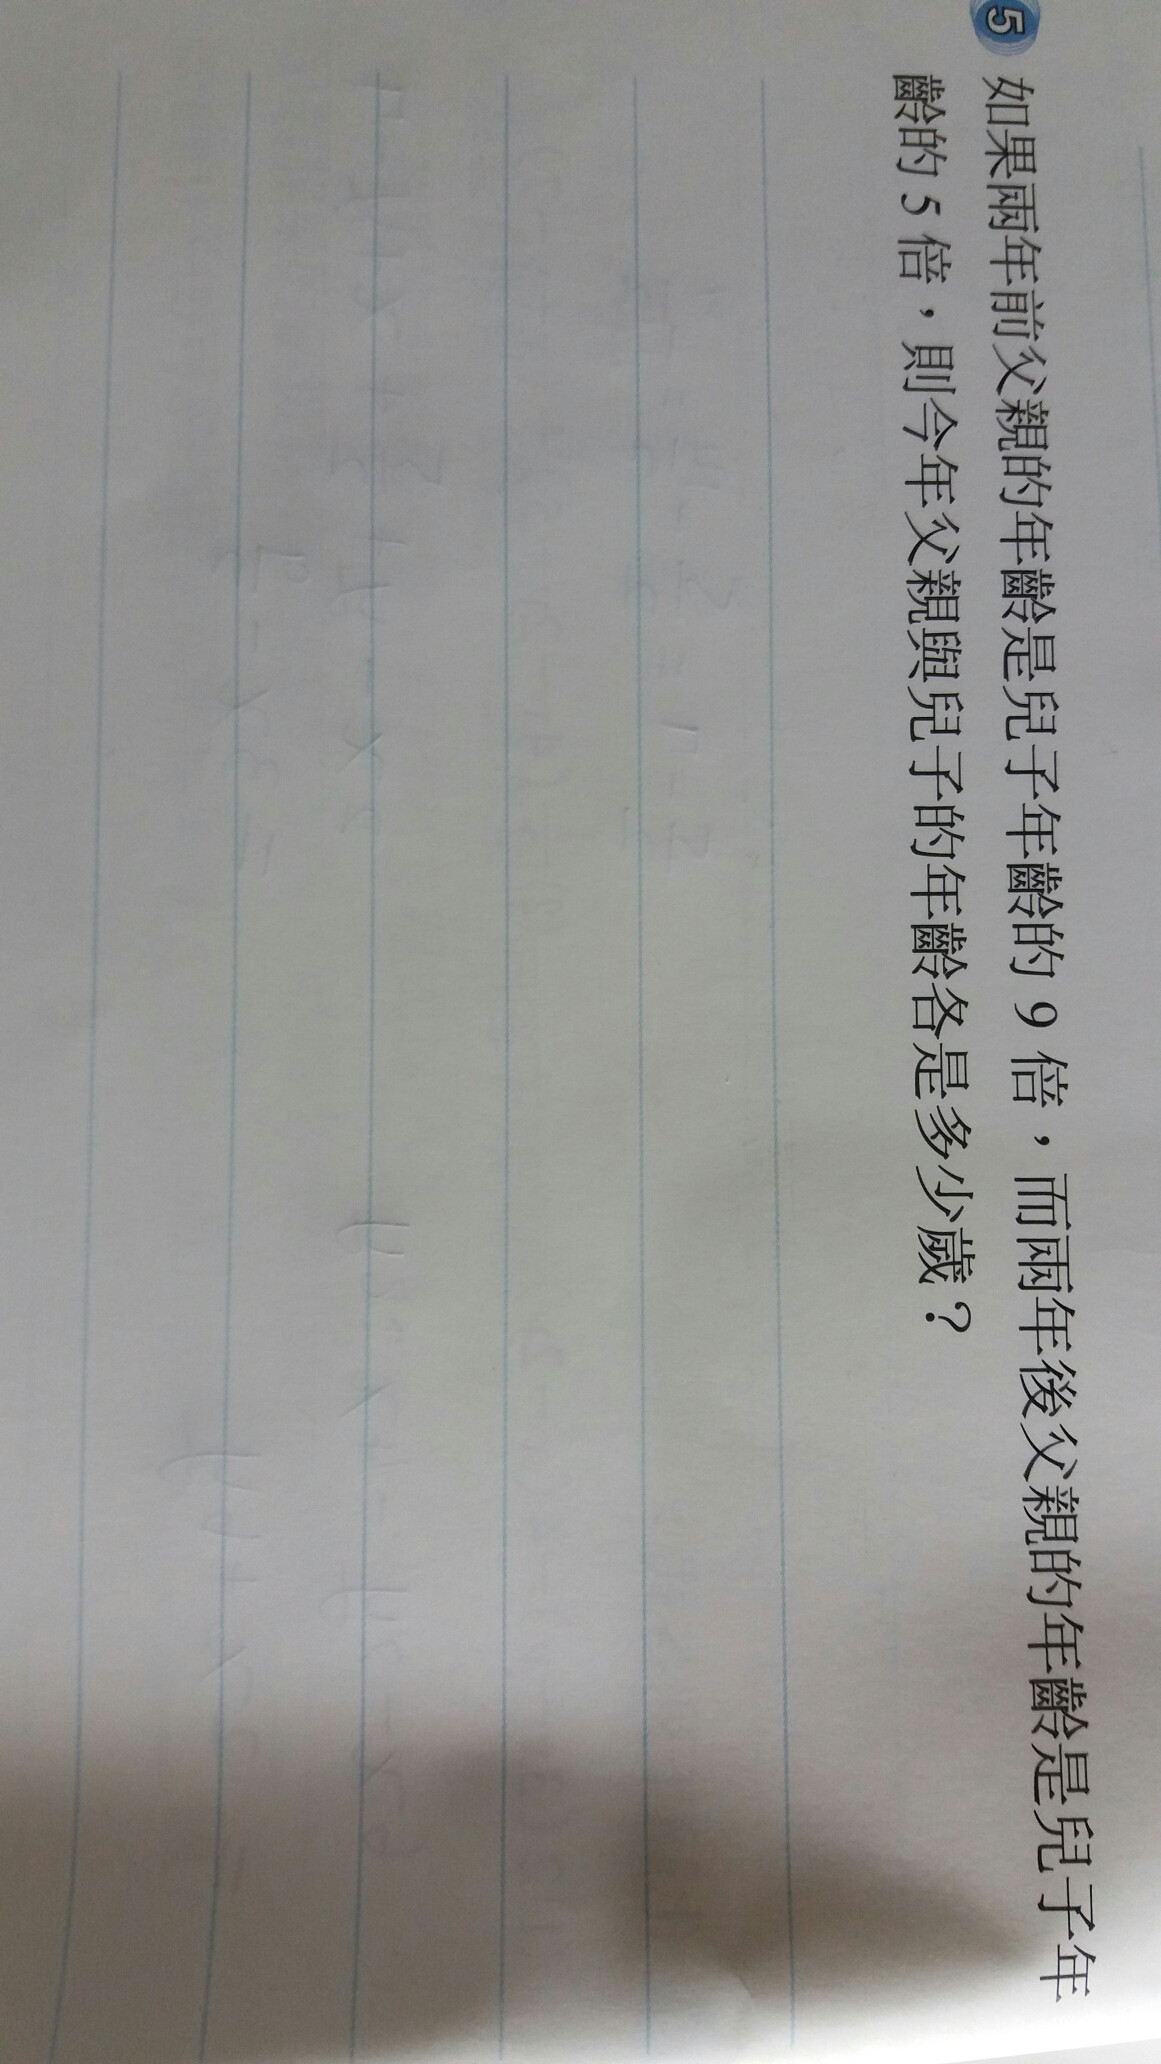 5 如果兩年前父親的年齡是兒子年齡的 9 倍，而兩年後父親的年齡是兒子年
齡的 5 倍，則今年父親與兒子的年齡各是多少歲？